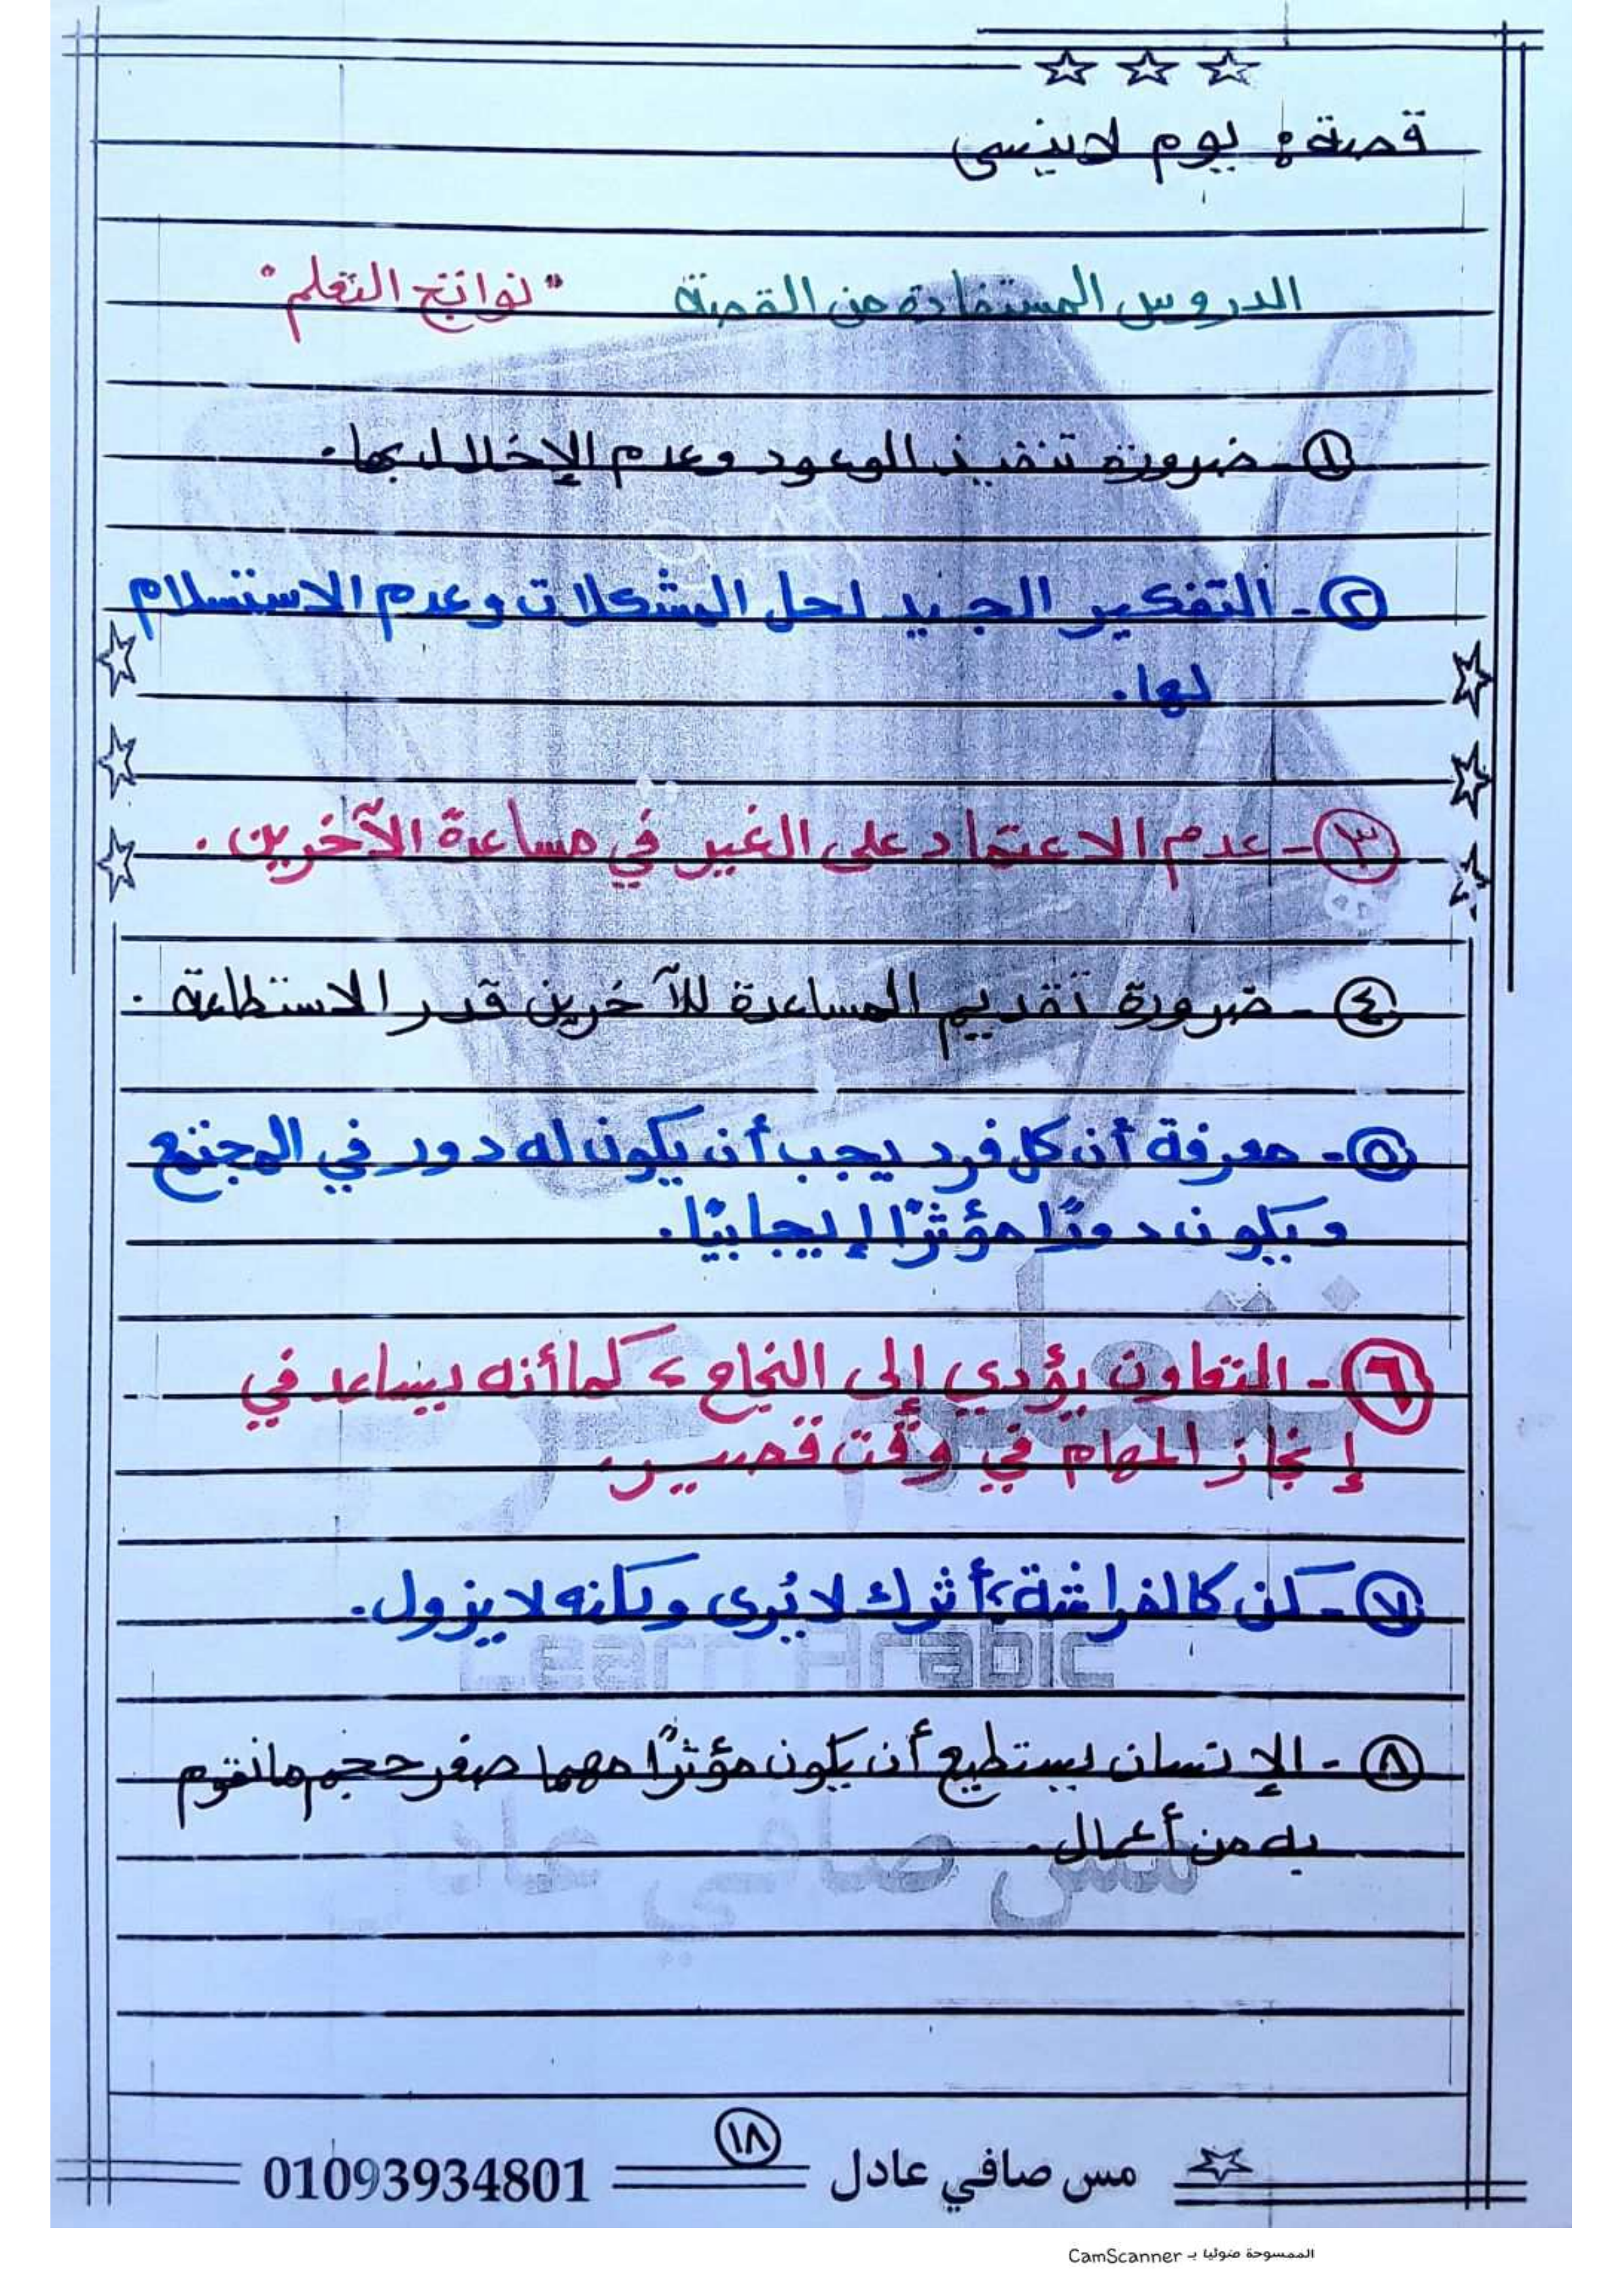 قصة: يوم لا ينسى
الدروس المستفادة من القصة "نواتج التعلم"
١- ضرورة تنفيذ الوعود وعدم الإخلال بها.
٢- التفكير الجيد لحل المشكلات وعدم الاستسلام
لها.
٣- عدم الاعتماد على الغير في مساعدة الآخرين.
٤- ضرورة تقديم المساعدة للآخرين قدر الاستطاعة.
٥- معرفة أن كل فرد يجب أن يكون له دور في المجتمع
ويكون دورًا مؤثرًا إيجابيًا.
٦- التعاون يؤدي إلى النجاح، كما أنه يساعد في
إنجاز المهام في وقت قصير.
٧- كن كالفراشة، أثرك لا يُرى ولكنه لا يزول.
Learn Arabic
٨- الإنسان يستطيع أن يكون مؤثرًا مهما صغر حجم ما نقوم
به من أعمال.
مس صافي عادل
١٨
مس صافي عادل 01093934801
الممسوحة ضوئيا بـ CamScanner